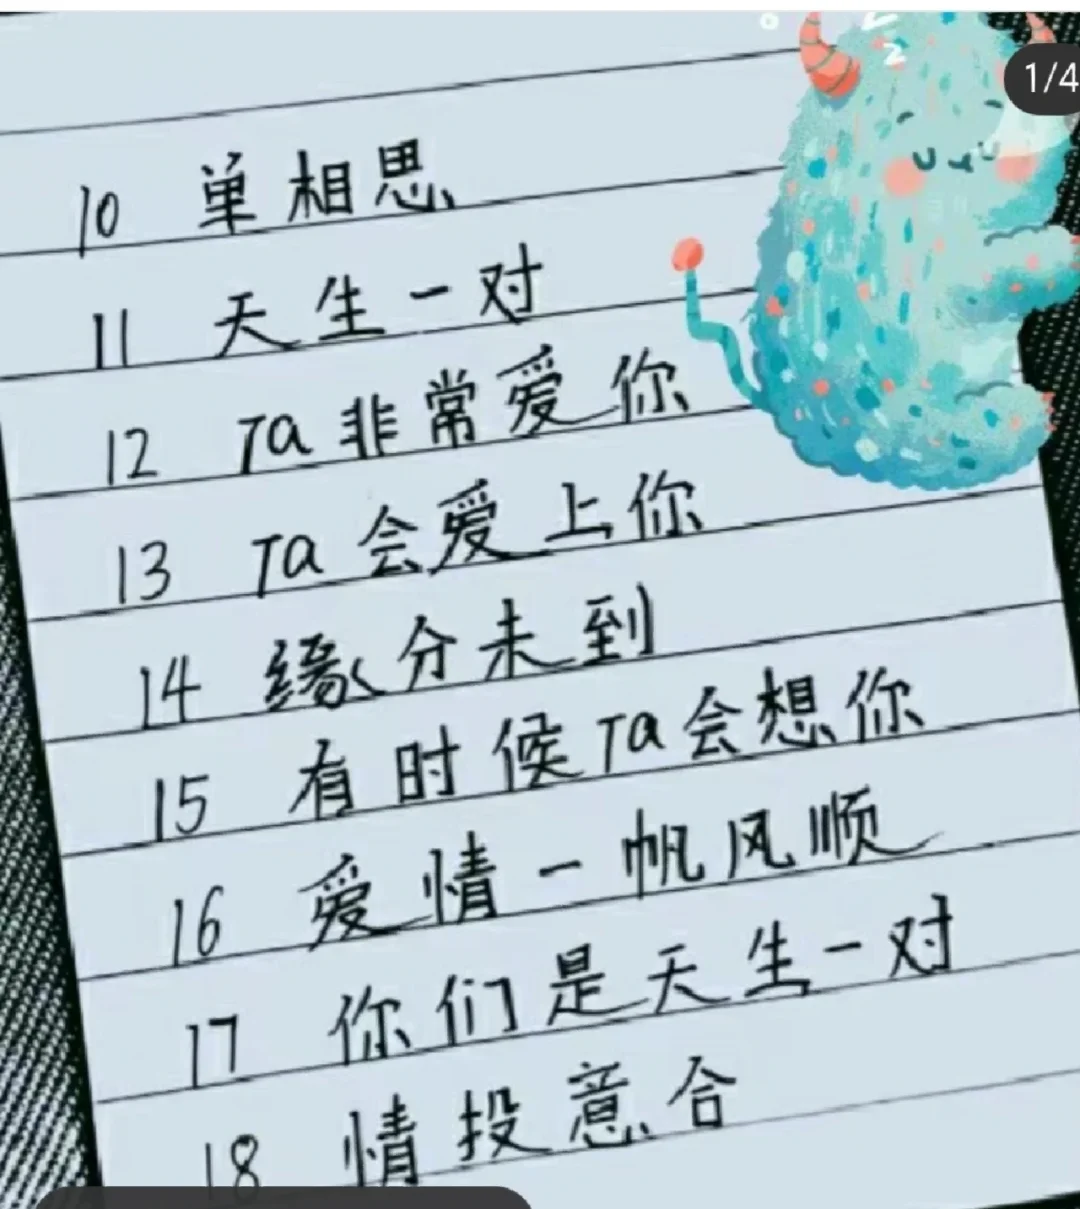 1/4
10 单相思
11 天生一对
12 Ta非常爱你
13 Ta会爱上你
14 缘分未到
15 有时候Ta会想你
16 爱情一帆风顺
17 你们是天生一对
18 情投意合